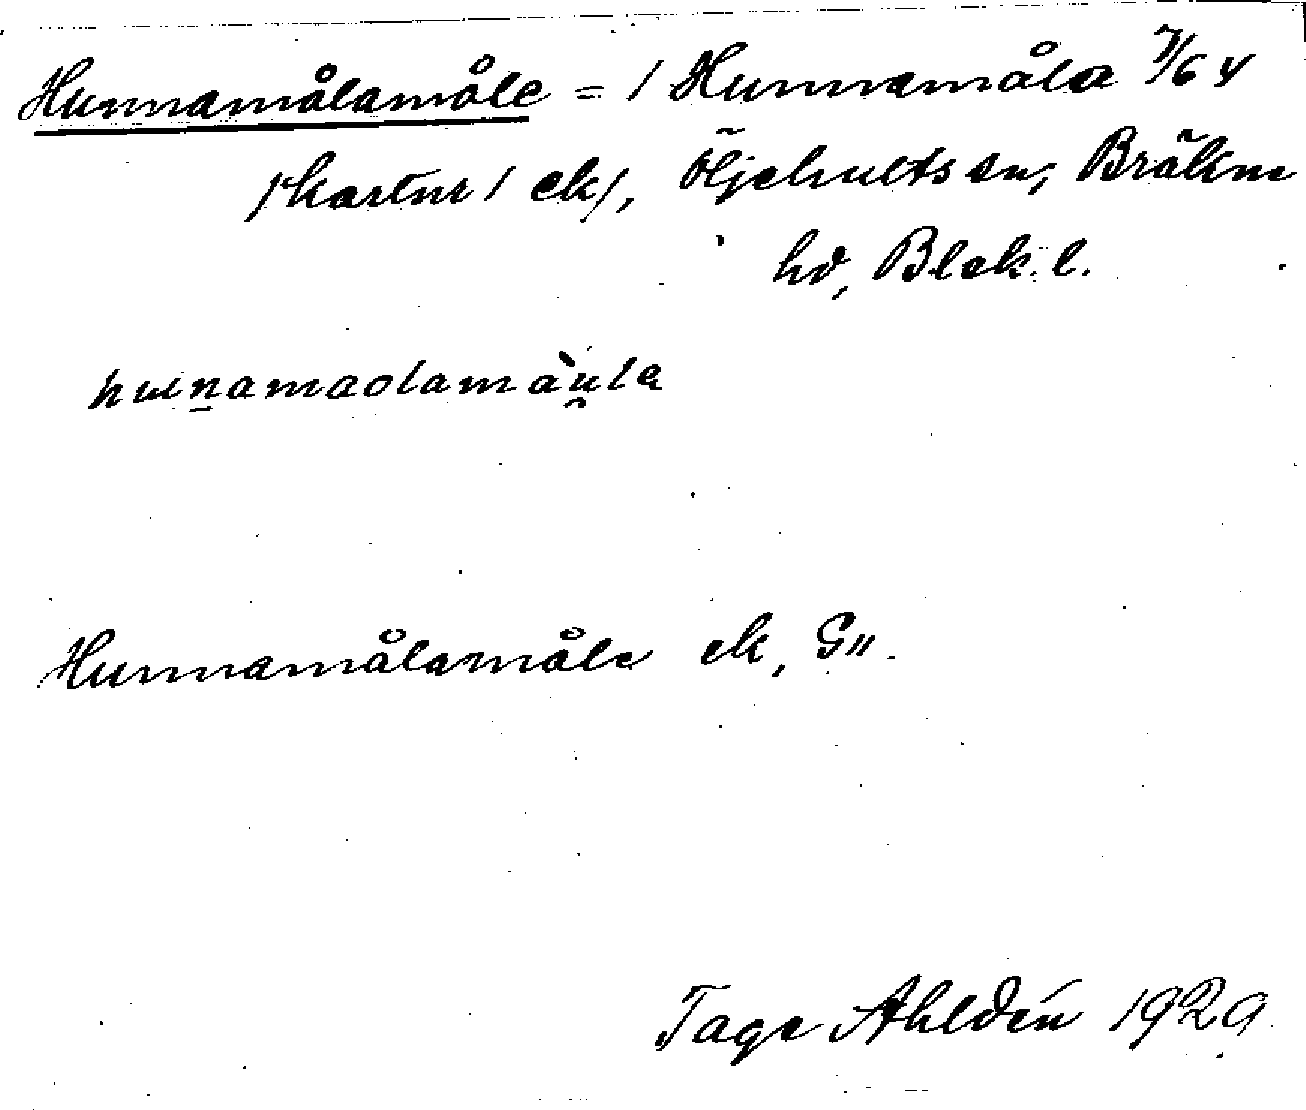 Hunnamålamåle = / Hunnamåla 7/64
/kartnr / ek/, Öljehults sn, Bräkne
hd, Blek. l.
hunamaolamàula
Hunnamålamåle ek, G".
Tage Ahldén 1929